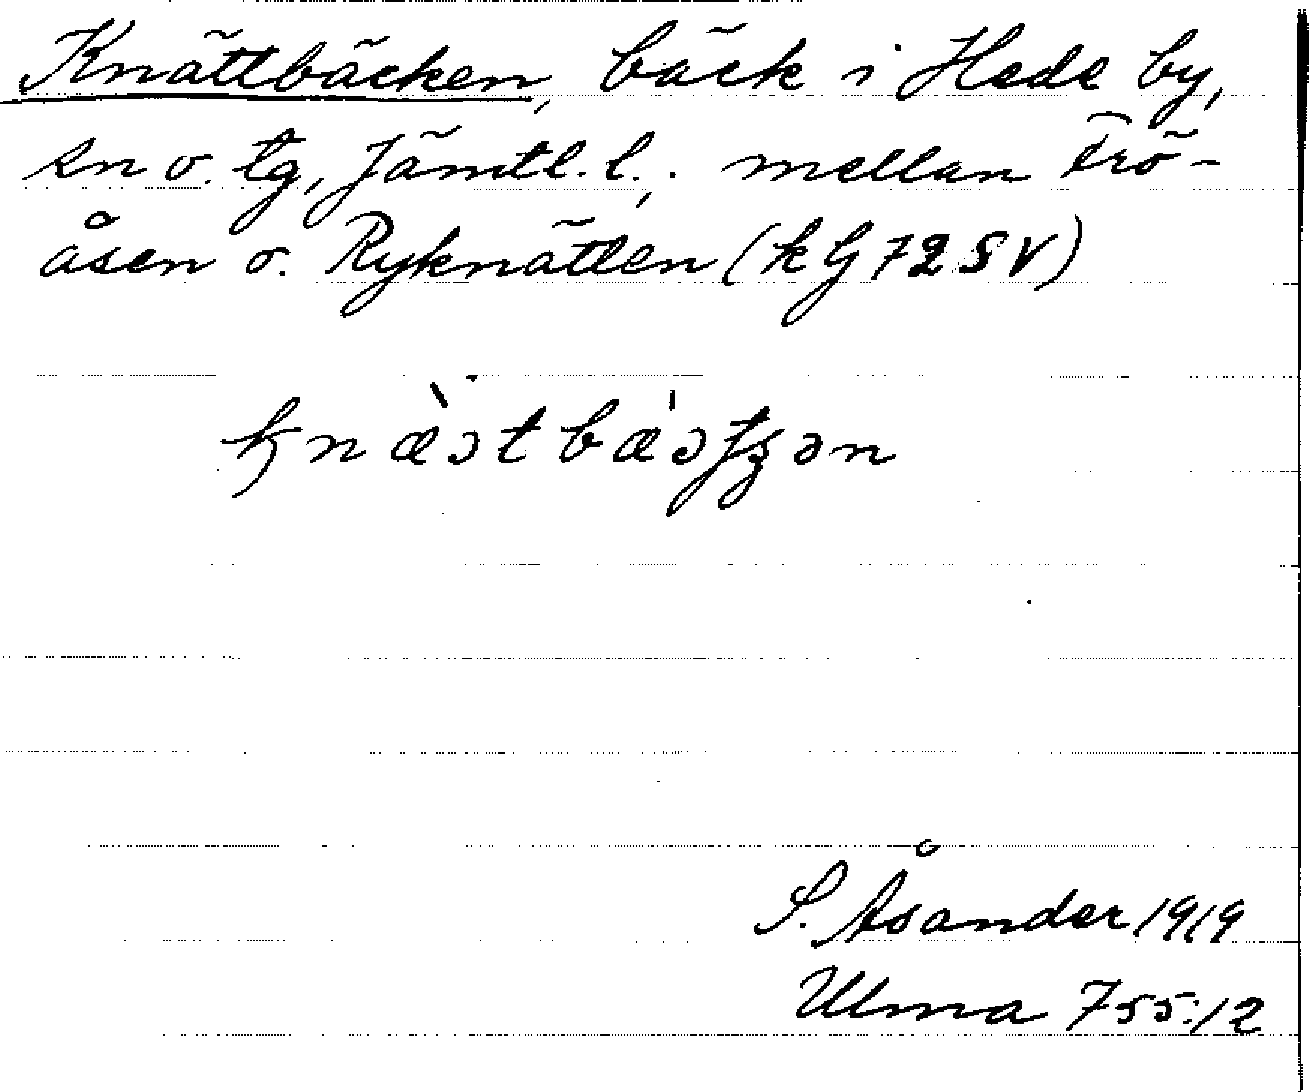 Knättbäcken, bäck i Hede by,
sn o. tg, Jämtl. l., mellan Frö-
åsen o. Ryknätten (k G 72 SV)
S. Åsander 1919
Ulma 755:12